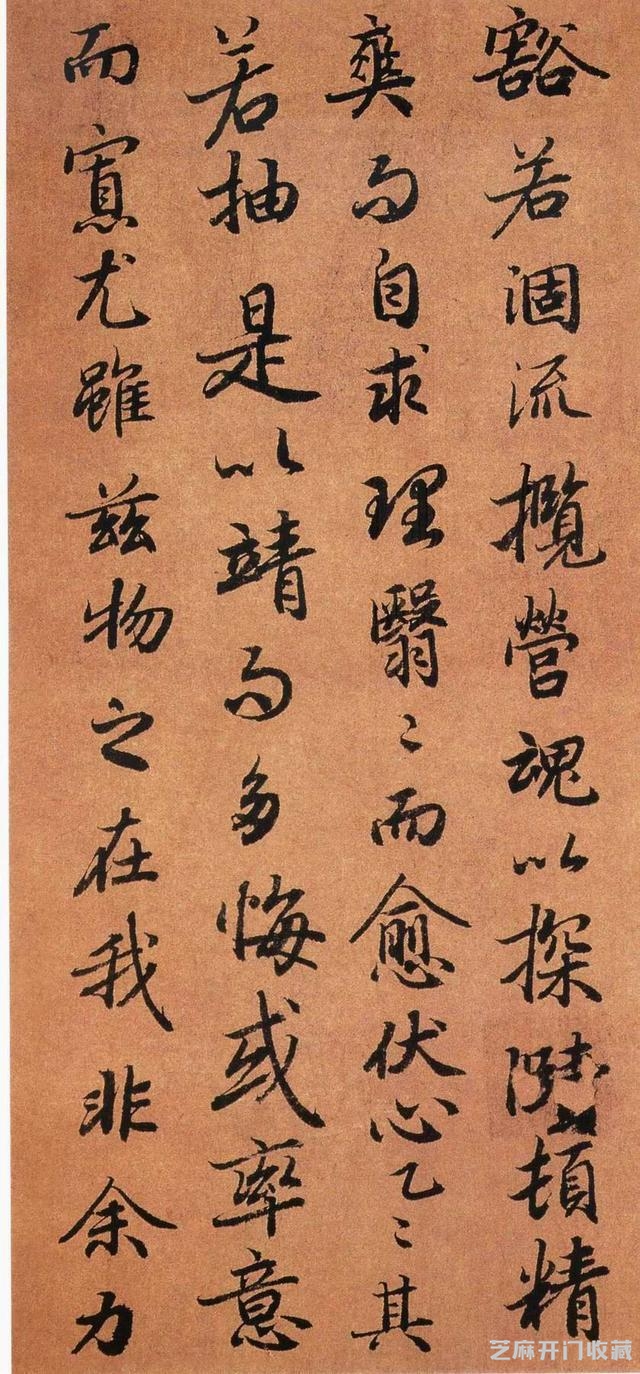 豁若涸流攬營魂以探頓精
爽而自求理翳〻而愈伏心乙〻其
若抽是以靖而多悔或率意
而寡尤雖茲物之在我非余力
芝麻开门收藏